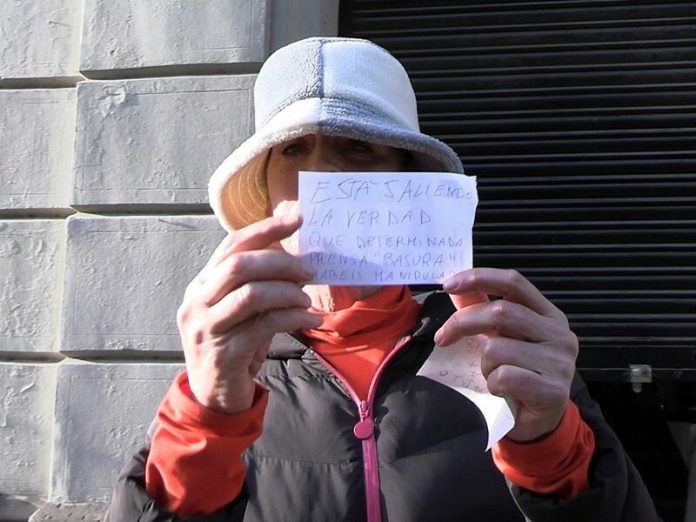 ESTÁ SALIENDO
LA VERDAD
QUE DETERMINADA
PRENSA "BASURA"
HABEIS MANIPULA